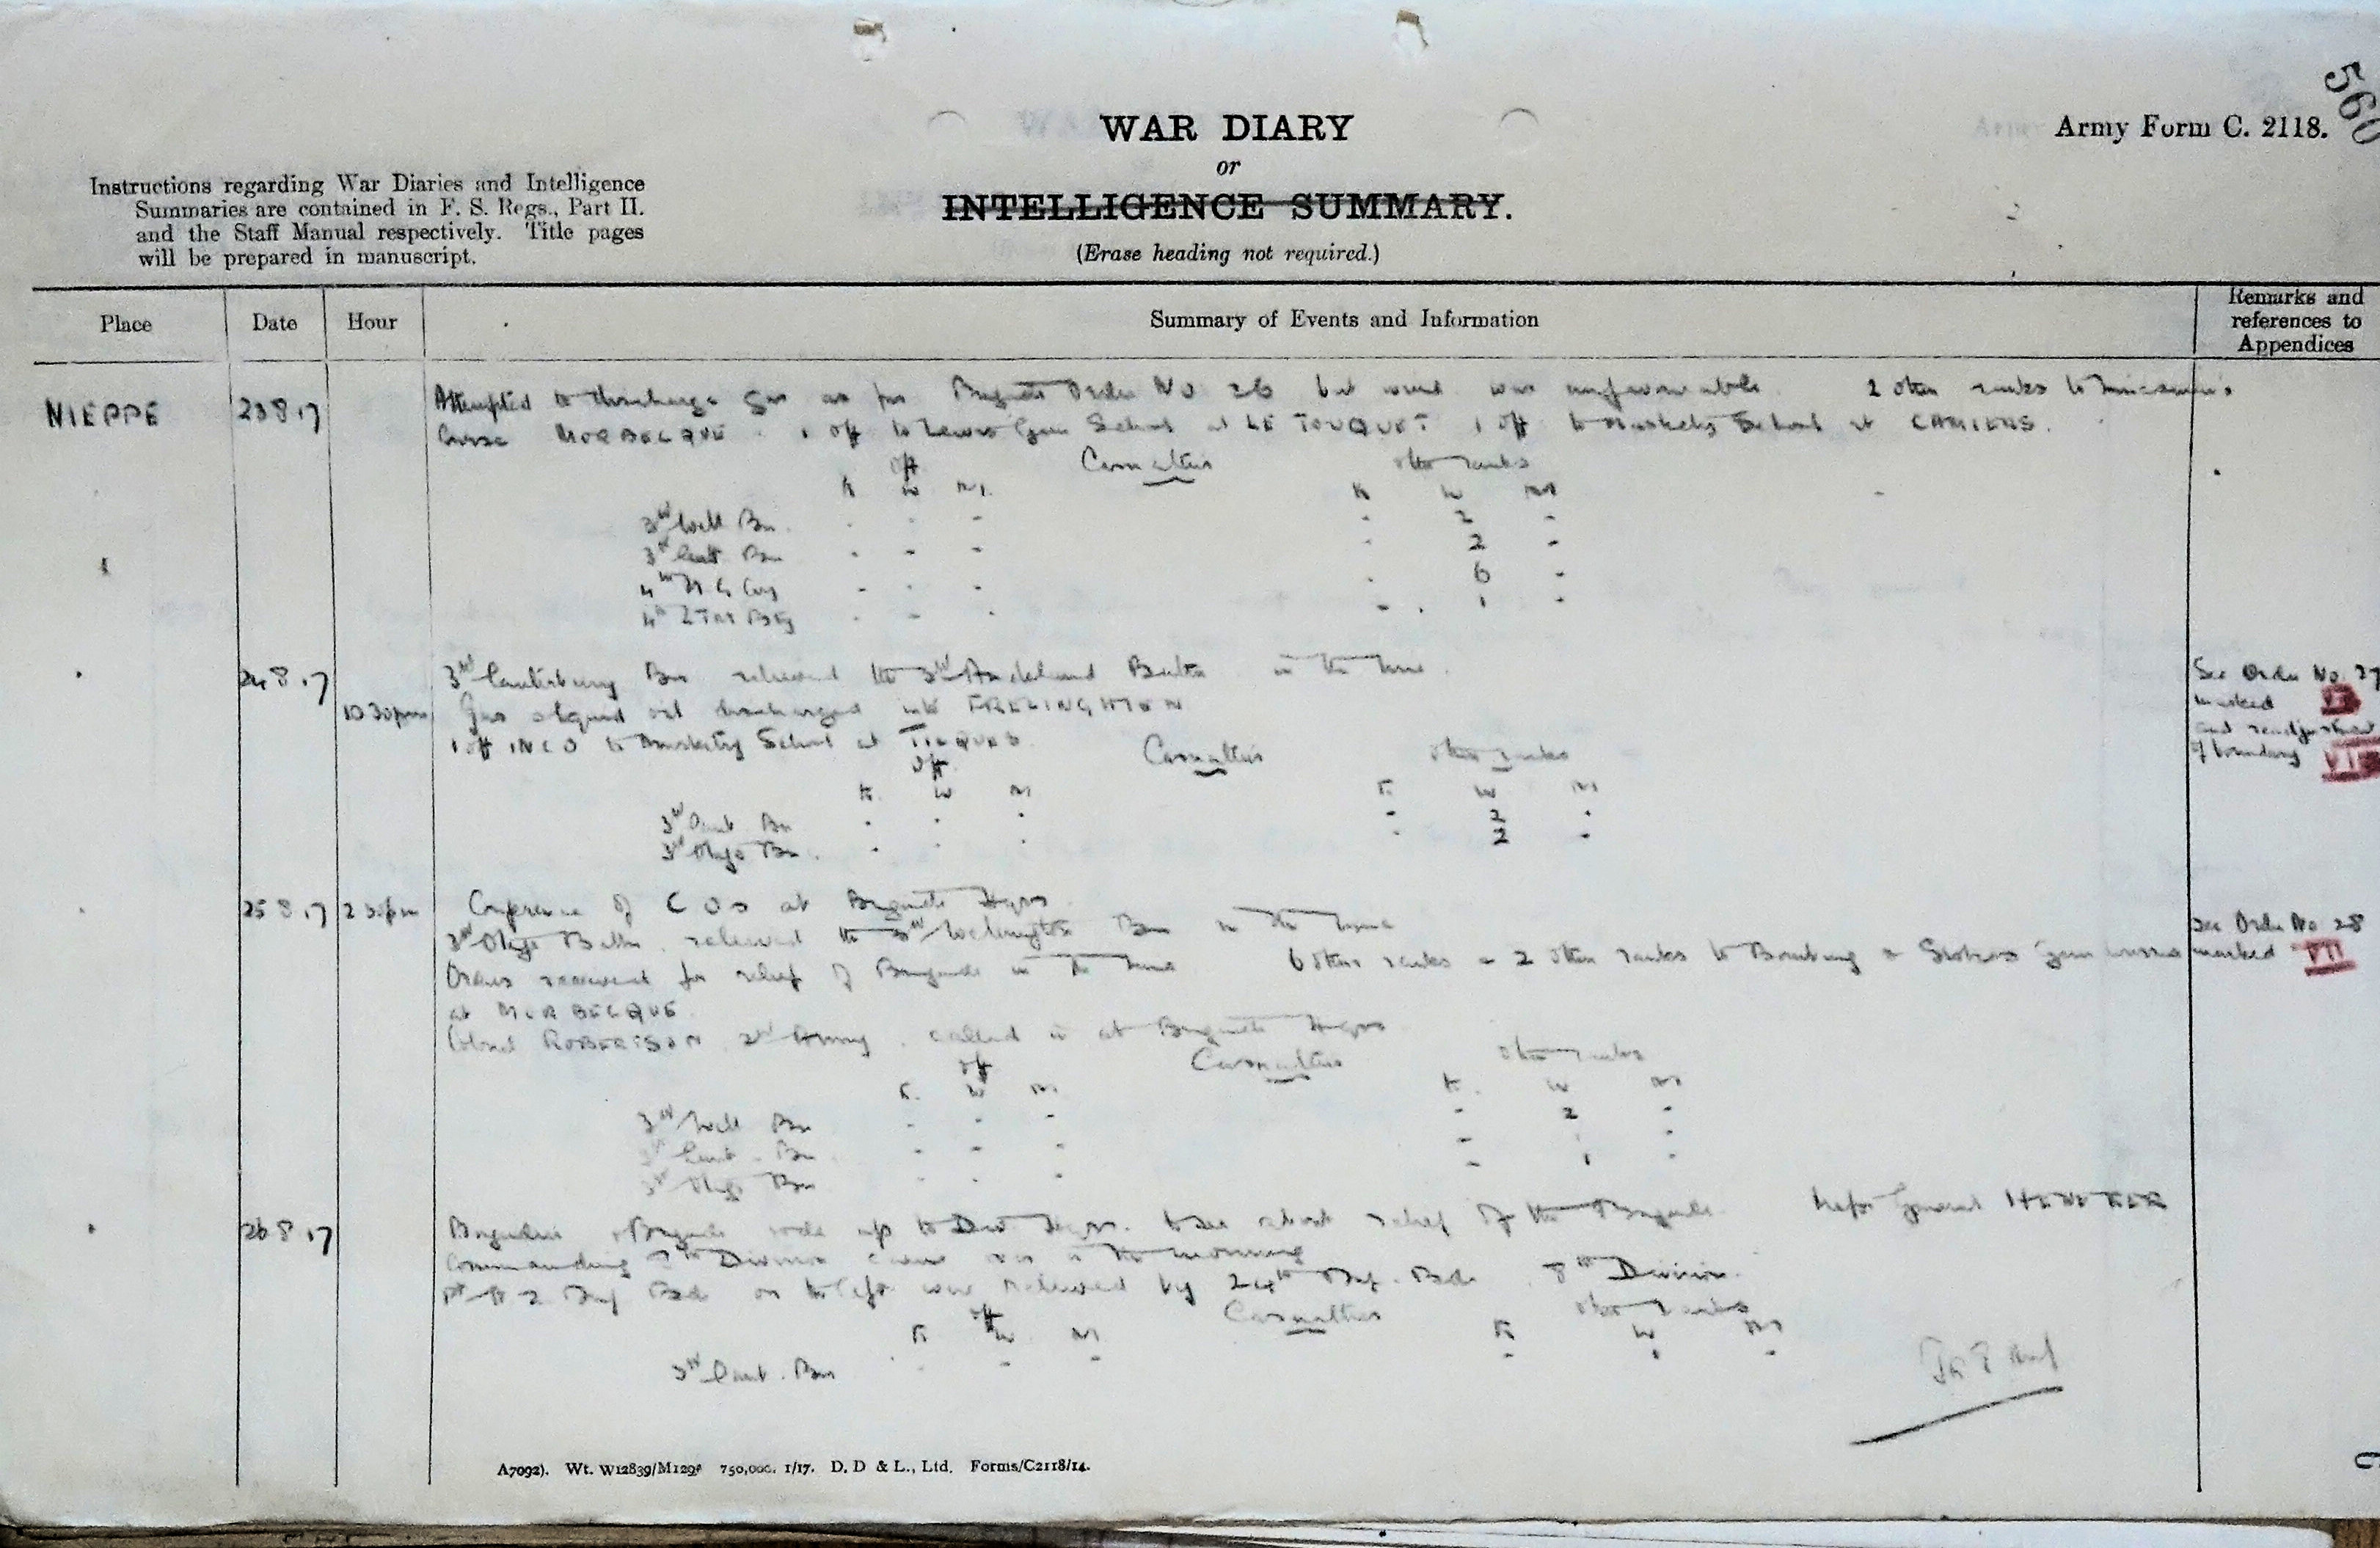 560
WAR DIARY
Army Form C. 2118.
or
INTELLIGENCE SUMMARY.
(Erase heading not required.)
Instructions regarding War Diaries and Intelligence
Summaries are contained in F. S. Regs., Part II.
and the Staff Manual respectively. Title pages
will be prepared in manuscript.
Place Date Hour Summary of Events and Information Remarks and references to Appendices
NIEPPE 23 8 17 Attempted to discharge gas as per Brigade Order No 26 but wind was unfavourable 2 other ranks to
Course MORBECQUE 1 off to Lewis Gun School at LE TOUQUET 1 off to Musketry School at CAMIERS.
off Casualties other ranks
K W M K W M
3rd Well Bn. - - - - 2 -
3rd Cant Bn - - - - 2 -
4th M G Coy - - - - 6 -
4th LTM Bty - - - - 1 -
24 8 17 3rd Canterbury Bn relieved the 3rd Auckland Battn in the line. See Order No. 27
10 30pm Gas discharged into FRELINGHIEN marked VI
1 off 1 NCO to Musketry School at TILQUES and readjustment
off Casualties other ranks of boundary
K. W M K W M
3rd Cant Bn - - - - 2 -
3rd Otago Bn. - - - - 2 -
25 8 17 2 30pm Conference of C Os at Brigade Hqrs
3rd Otago Battn. relieved the 3rd Wellington Bn in the line See Order No 28
Orders received for relief of Brigade in the line 6 other ranks & 2 other ranks to Bombing & Stokes Gun marked VII
at MORBECQUE
Colonel ROBERTSON 2nd Army called in at Brigade Hqrs
off Casualties other ranks
K. W M K. W M
3rd Well Bn - - - - 2 -
3rd Cant. Bn - - - -
3rd Otago Bn - - - 1 -
26 8 17 Brigadier Brigade rode up to Div Hqrs. to see about relief of the Brigade Major General HENEKER
Commanding 8th Division came in the morning
Inf Bde on the left was relieved by 24th Inf. Bde 8th Division.
off Casualties other ranks
K W M K W M
3rd Cant. Bn - - - - 1 -
A7092). Wt. W12839/M1298 750,000. 1/17. D. D & L., Ltd. Forms/C2118/14.